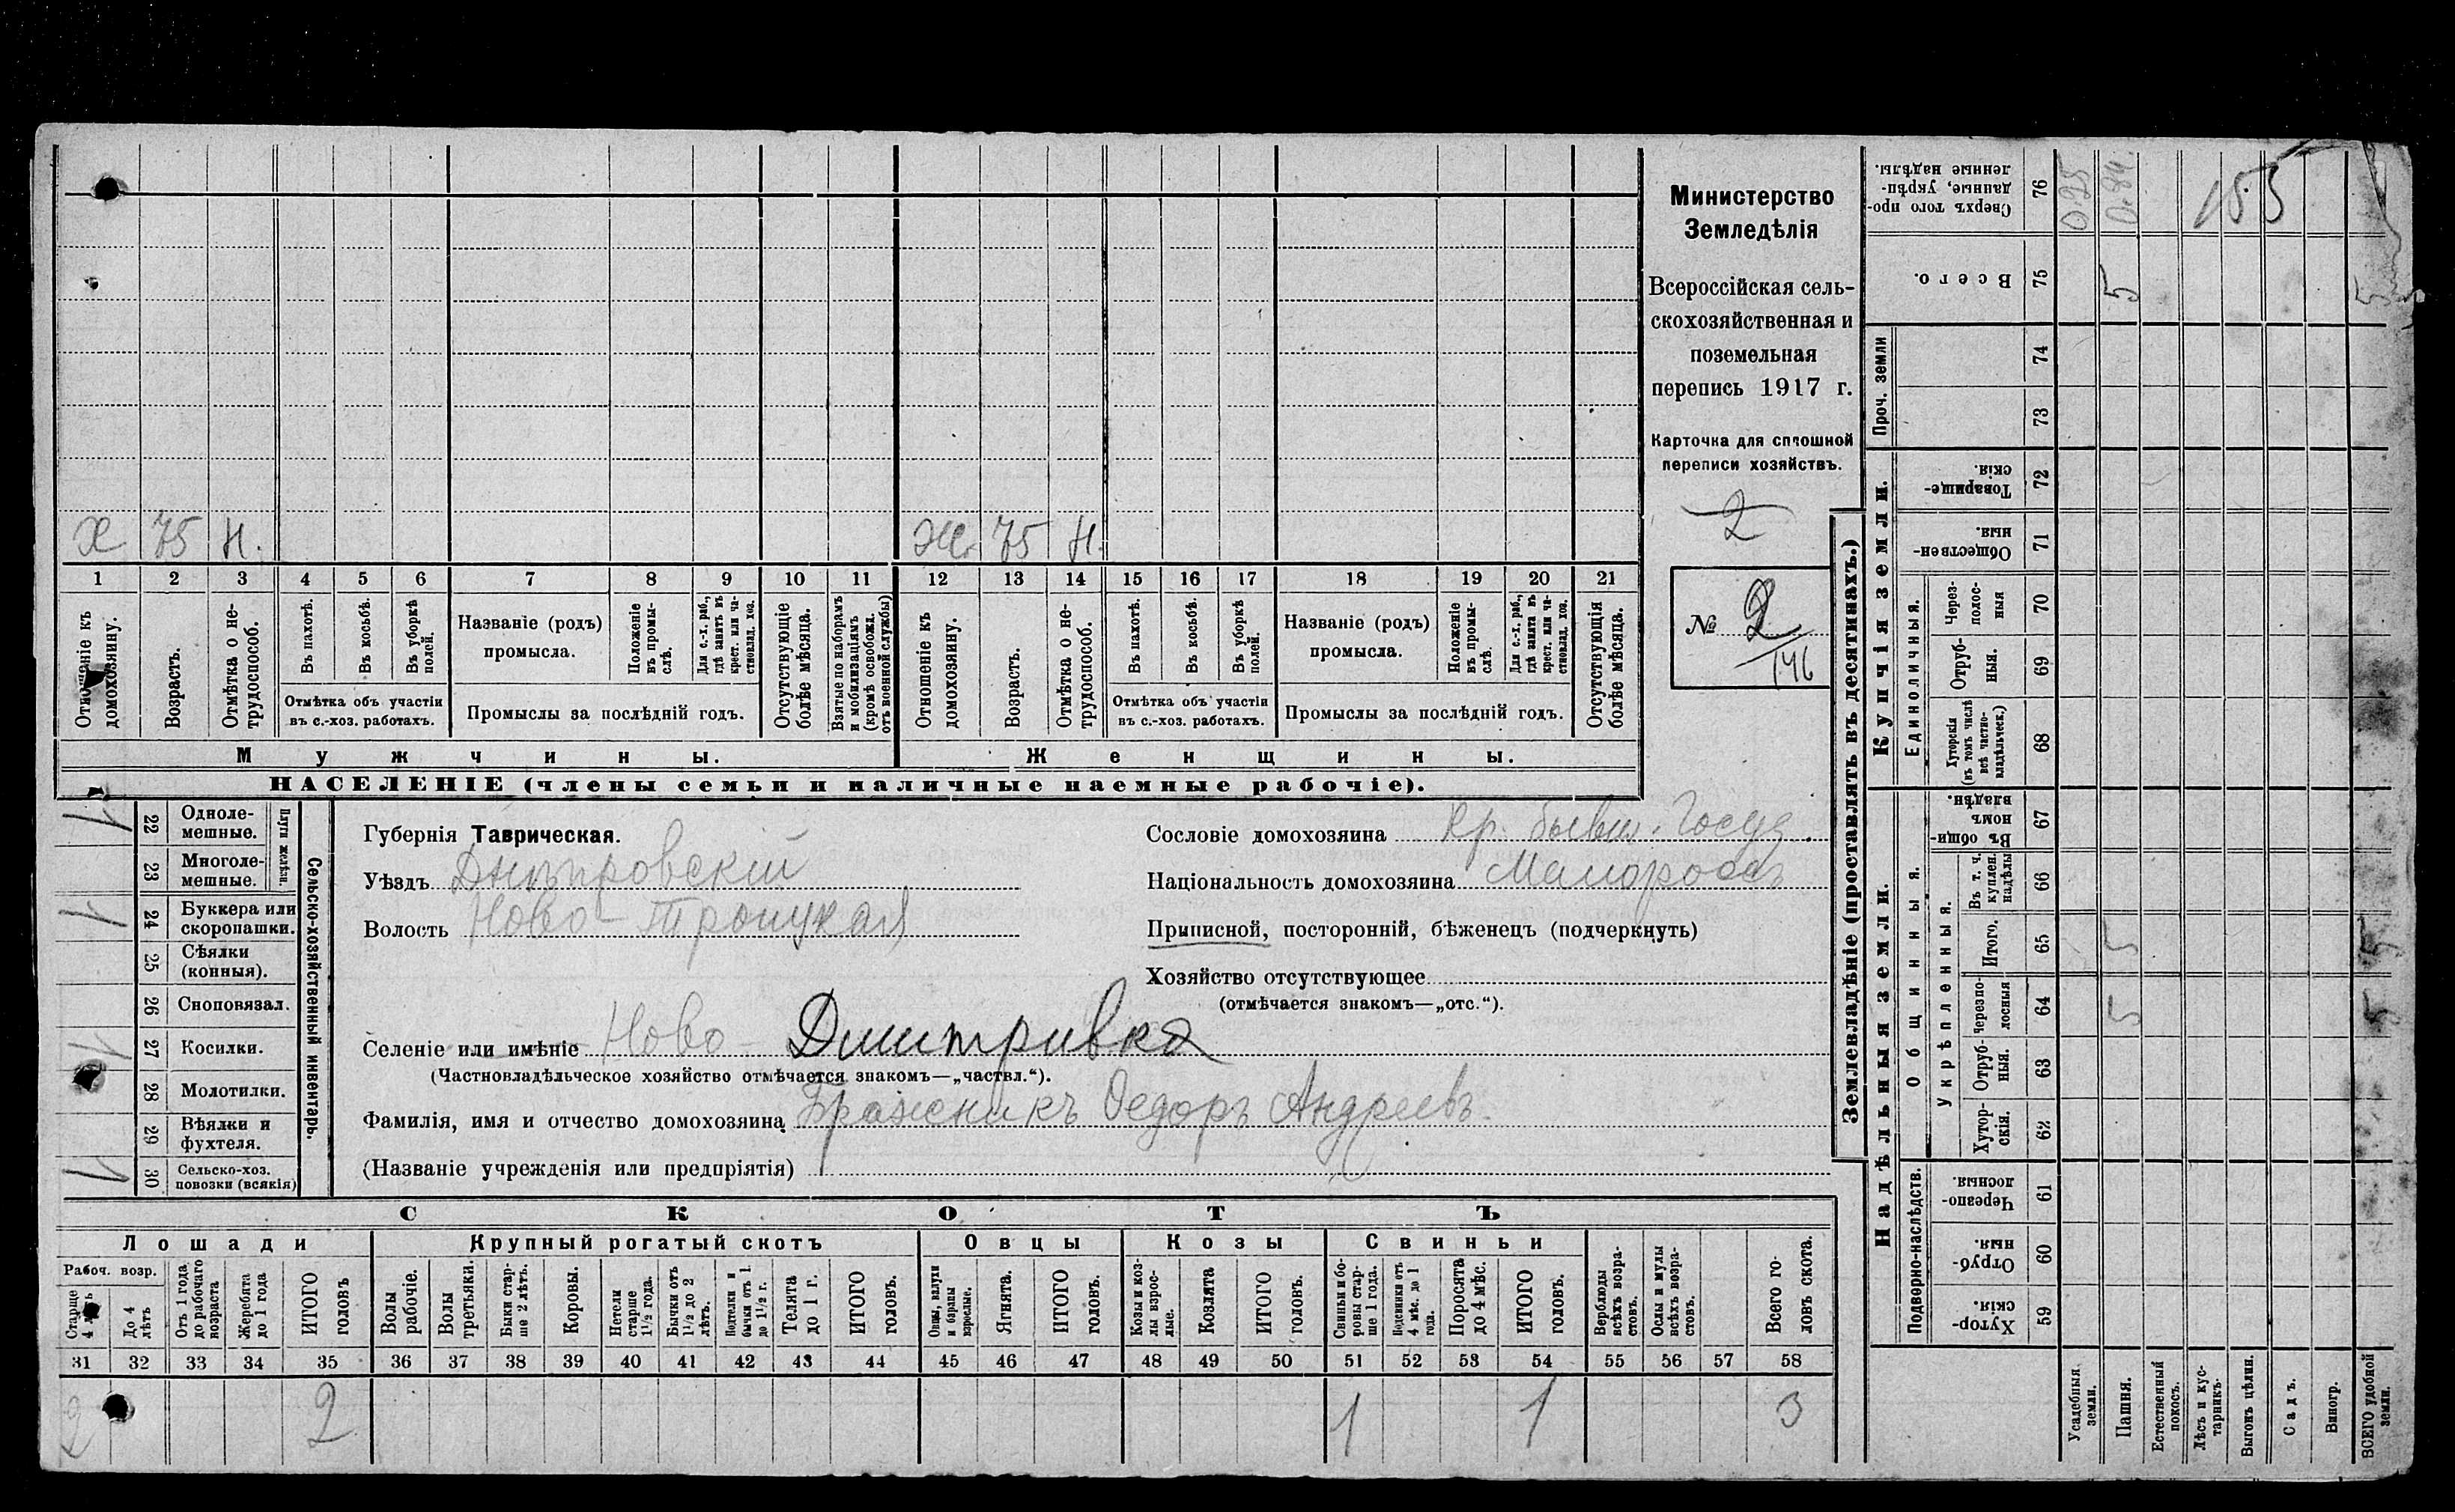 Министерство
Земледѣлія
Всероссійская сель-
скохозяйственная и
поземельная
перепись 1917 г.
Карточка для сплошной
переписи хозяйствъ.
2
№ 2
146
Х 75 Н. Ж. 75 Н.
1 2 3 4 5 6 7 8 9 10 11 12 13 14 15 16 17 18 19 20 21
Отношеніе къ домохозяину.
Возрастъ.
Отмѣтка о не-трудоспособ.
Въ пахотѣ.
Въ косьбѣ.
Въ уборкѣ полей.
Отмѣтка объ участіи
въ с.-хоз. работахъ.
Названіе (родъ)
промысла.
Положеніе въ промы-слѣ.
Для с.-х. раб., гдѣ занятъ въ крест. или ча-стновлад. хоз.
Промыслы за послѣдній годъ.
Отсутствующіе болѣе мѣсяца.
Взятые по наборамъ и мобилизаціямъ (кромѣ освобожд. отъ военной службы)
Отношеніе къ домохозяину.
Возрастъ.
Отмѣтка о не-трудоспособ.
Въ пахотѣ.
Въ косьбѣ.
Въ уборкѣ полей.
Отмѣтка объ участіи
въ с.-хоз. работахъ.
Названіе (родъ)
промысла.
Положеніе въ промы-слѣ.
Для с.-х. раб., гдѣ занята въ крест. или ча-стновлад. хоз.
Промыслы за послѣдній годъ.
Отсутствующія болѣе мѣсяца.
Мужчины.
Женщины.
НАСЕЛЕНІЕ (члены семьи и наличные наемные рабочіе).
Сельско-хозяйственный инвентарь.
Плуги желѣзн.
1 22 Одноле-мешные.
23 Многоле-мешные.
1 24 Буккера или скоропашки.
25 Сѣялки (конныя).
26 Сноповязал.
1 27 Косилки.
28 Молотилки.
29 Вѣялки и фухтеля.
1 30 Сельско-хоз. повозки (всякія)
Губернія Таврическая.
Уѣздъ Днѣпровскій
Волость Ново-Троицкая
Сословіе домохозяина кр. бывш. Госуд.
Національность домохозяина Малороссъ
Приписной, посторонній, бѣженецъ (подчеркнуть)
Хозяйство отсутствующее
(отмѣчается знакомъ—„отс.“).
Селеніе или имѣніе Ново-Дмитривка
(Частновладѣльческое хозяйство отмѣчается знакомъ—„частвл.“).
Фамилія, имя и отчество домохозяина Бражникъ Ѳедоръ Андреевъ.
(Названіе учрежденія или предпріятія)
СКОТЪ
Лошади
Крупный рогатый скотъ
Овцы
Козы
Свиньи
Рабоч. возр.
Старше 4 лѣтъ
До 4 лѣтъ
Отъ 1 года до рабочаго возраста
Жеребята до 1 года
ИТОГО головъ
Волы рабочіе.
Волы третьяки.
Быки стар-ше 2 лѣтъ.
Коровы.
Нетели старше 1½ года.
Бычки отъ 1½ до 2 лѣтъ.
Подтелки и бычки отъ 1 до 1½ г.
Телята до 1 г.
ИТОГО головъ.
Овцы, валухи и бараны взрослые.
Ягнята.
ИТОГО головъ.
Козы и коз-лы взрос-лые.
Козлята
ИТОГО головъ.
Свиньи и бо-ровы стар-ше 1 года.
Подсвинки отъ 4 мѣс. до 1 года.
Поросята до 4 мѣс.
ИТОГО головъ.
Верблюды всѣхъ возра-стовъ.
Ослы и мулы всѣхъ возра-стовъ.
Всего го-ловъ скота.
31 32 33 34 35 36 37 38 39 40 41 42 43 44 45 46 47 48 49 50 51 52 53 54 55 56 57 58
2 2 1 1 3
Землевладѣніе (проставлять въ десятинахъ.)
Надѣльныя земли.
Купчія земли.
Проч. земли
Подворно-наслѣдств.
Общинныя.
Укрѣпленныя.
Единоличныя.
76 Сверхъ того про-данные, укрѣп-ленные надѣлы.
0.25 0.84 153
75 Всего.
5 5
74
73
72 Товарище-скія.
71 Обществен-ныя.
70 Через-полос-ныя
69 Отруб-ныя.
68 Хуторскія (въ томъ числѣ всѣ частно-владѣльческ.)
67 Въ общи-номъ владѣн.
66 Въ т. ч. куплен. надѣлы
65 Итого.
5 5
64 Черезпо-лосныя
5 5
63 Отруб-ныя.
62 Хутор-скія.
61 Черезпо-лосныя.
60 Отруб-ныя.
59 Хутор-скія.
Усадебныя земли.
Пашня.
Естественный покосъ.
Лѣсъ и кус-тарникъ.
Выгонъ цѣлин.
Садъ.
Виногр.
ВСЕГО удобной земли.